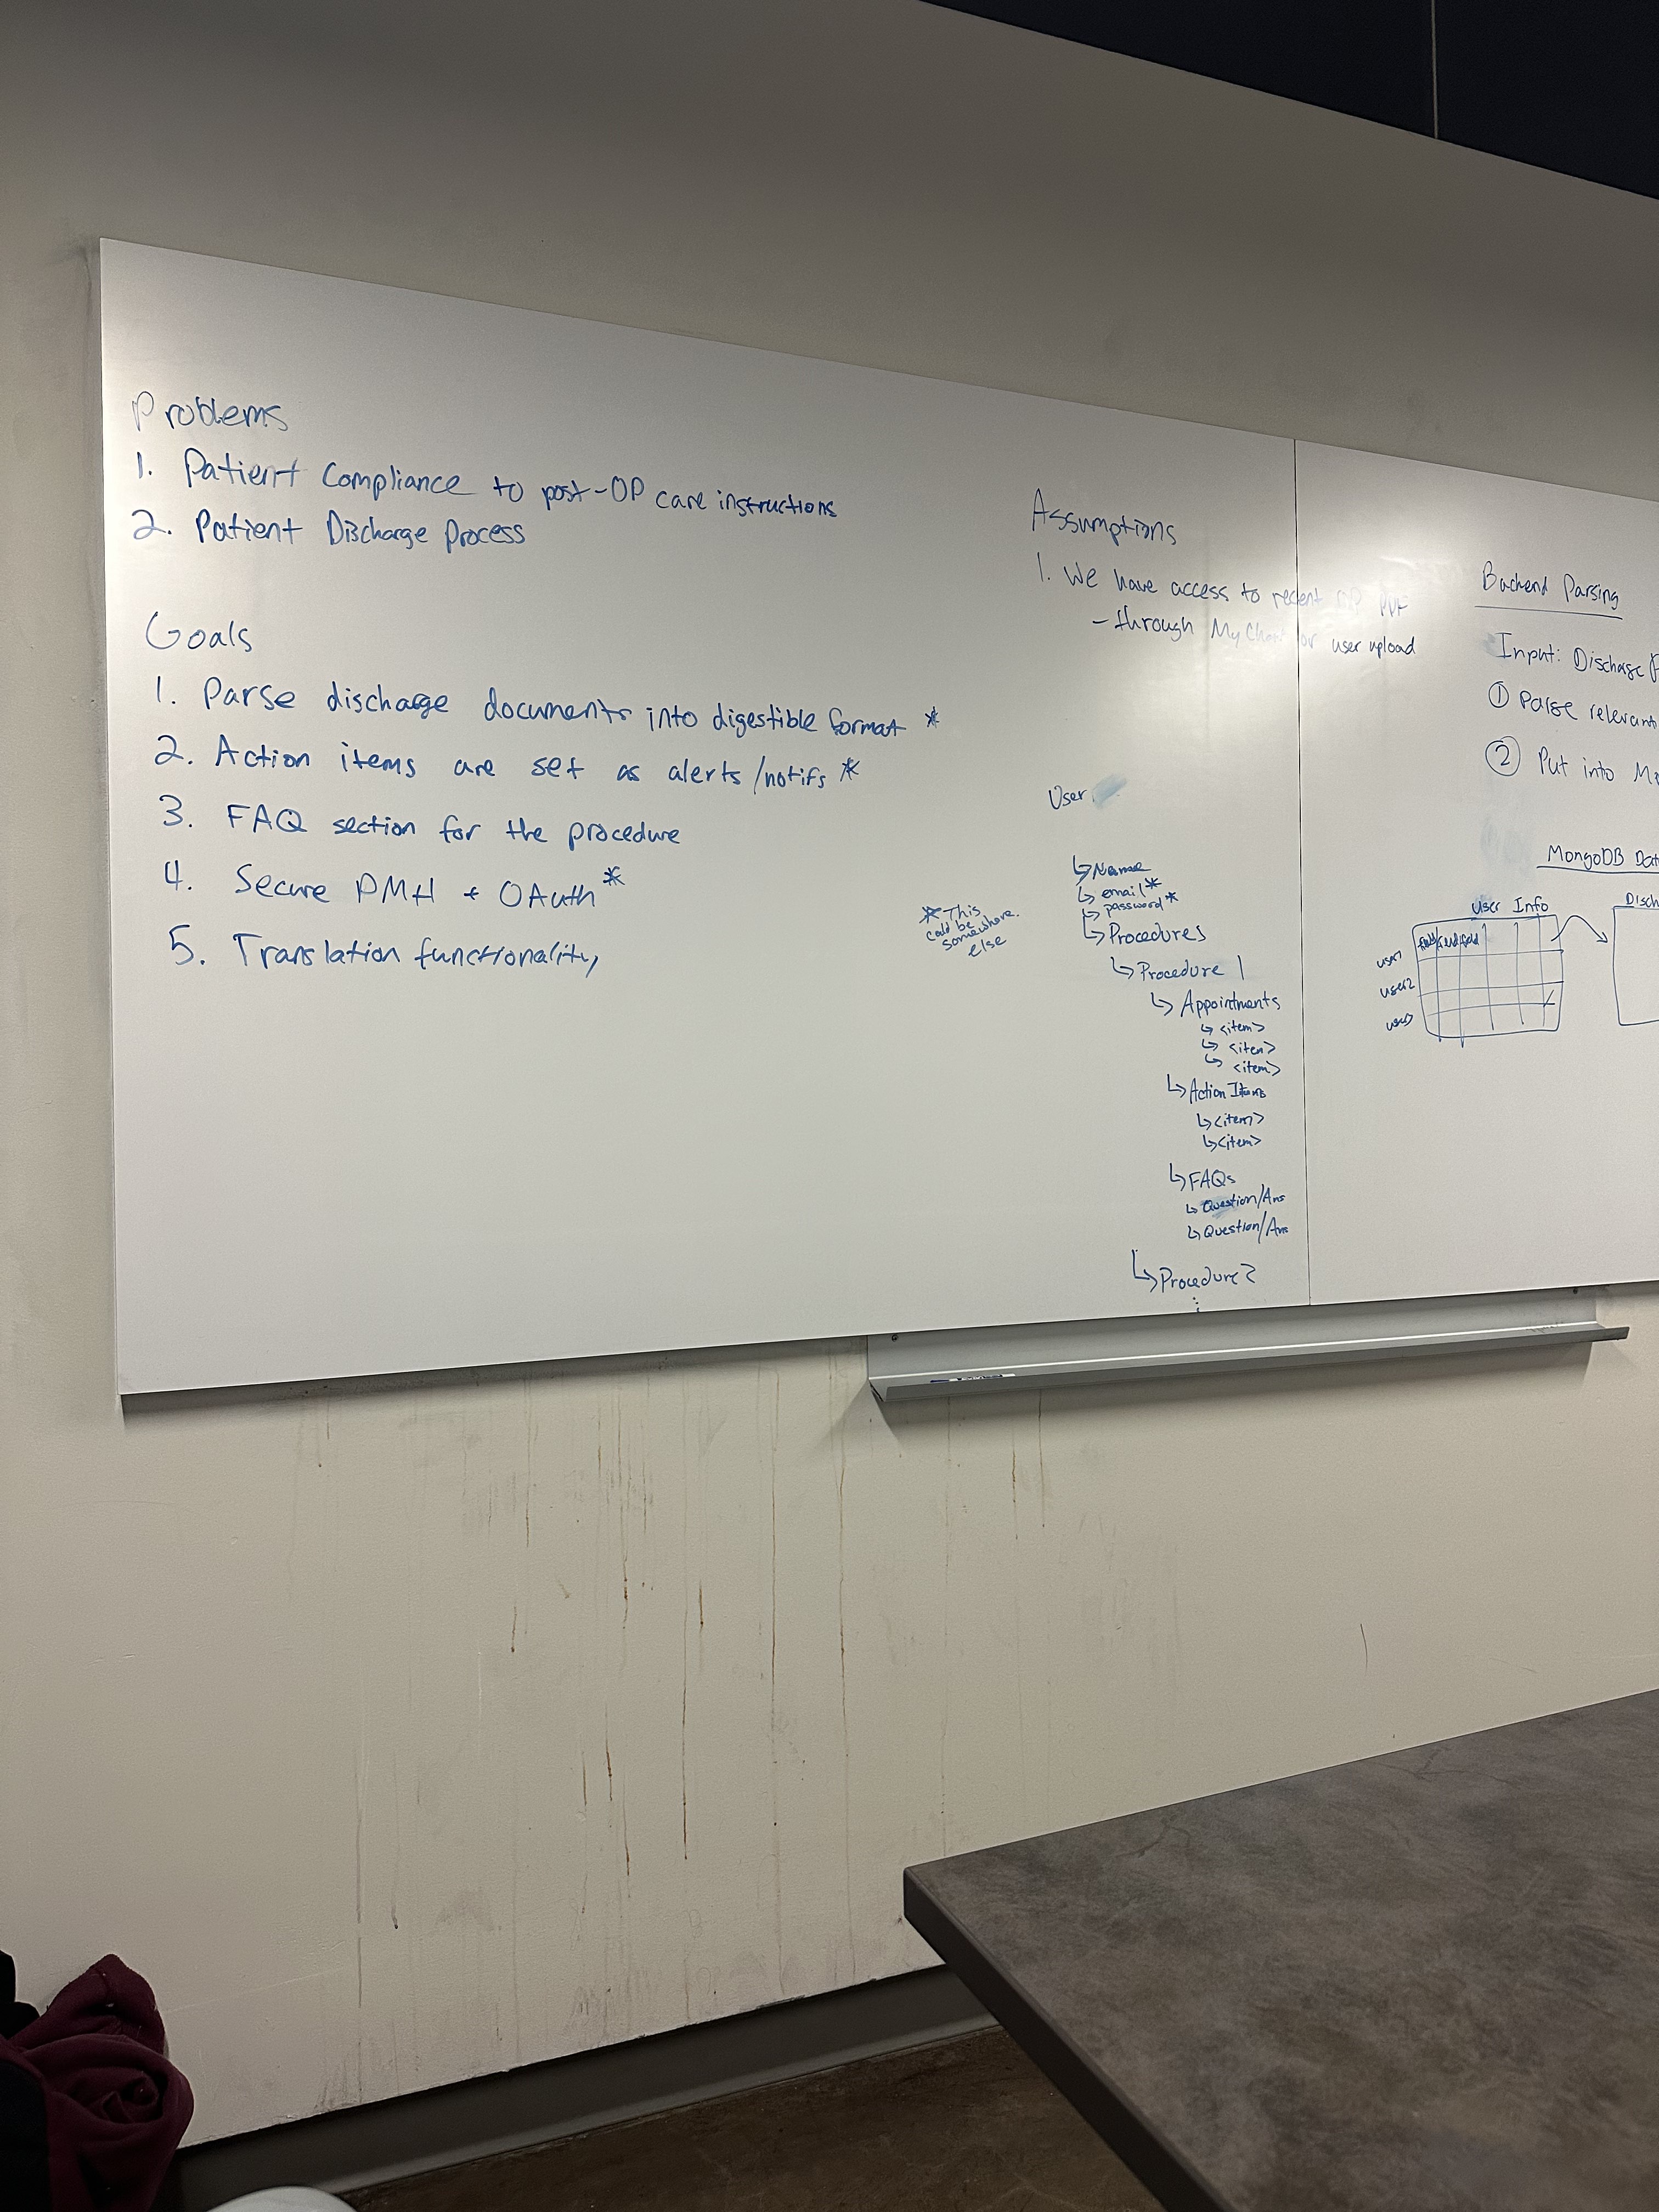 Problems
1. Patient Compliance to post-OP care instructions
2. Patient Discharge Process
Goals
1. Parse discharge documents into digestible format *
2. Action items are set as alerts/notifs *
3. FAQ section for the procedure
4. Secure PMH + OAuth *
5. Translation functionality
Assumptions
1. We have access to recent OP PDF
- through MyChart or user upload
User
↳ Name
↳ email *
↳ password *
↳ Procedures
* This
could be
somewhere
else
↳ Procedure 1
↳ Appointments
↳ <item>
↳ <item>
↳ <item>
↳ Action Items
↳ <item>
↳ <item>
↳ FAQs
↳ Question/Ans
↳ Question/Ans
↳ Procedure 2
⋮
Backend Parsing
Input: Discharge
① Parse relevant
② Put into
MongoDB
User Info
field field field
user1
user2
user3